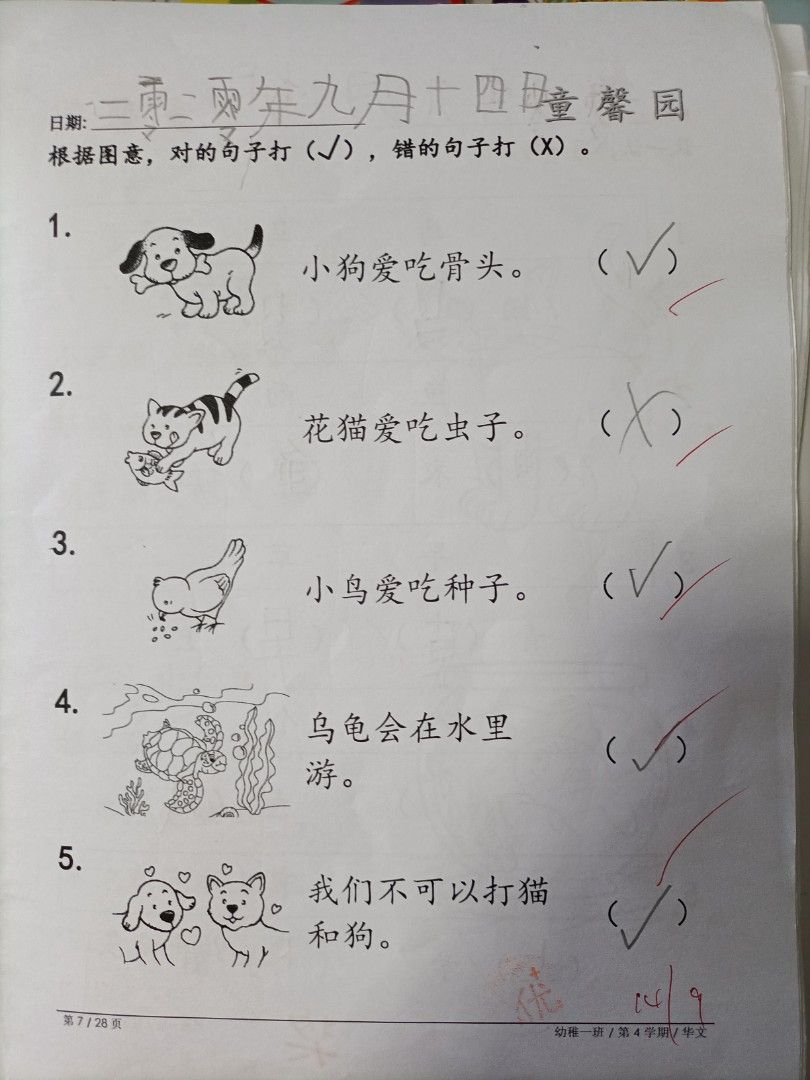 二零二零年九月十四日
日期: 童馨园
根据图意，对的句子打（√），错的句子打（X）。
1. 小狗爱吃骨头。 （ ✓ ）
2. 花猫爱吃虫子。 （ X ）
3. 小鸟爱吃种子。 （ ✓ ）
4. 乌龟会在水里
游。 （ ✓ ）
5. 我们不可以打猫
和狗。 （ ✓ ）
优+
14/9
第 7 / 28 页 幼稚一班 / 第 4 学期 / 华文